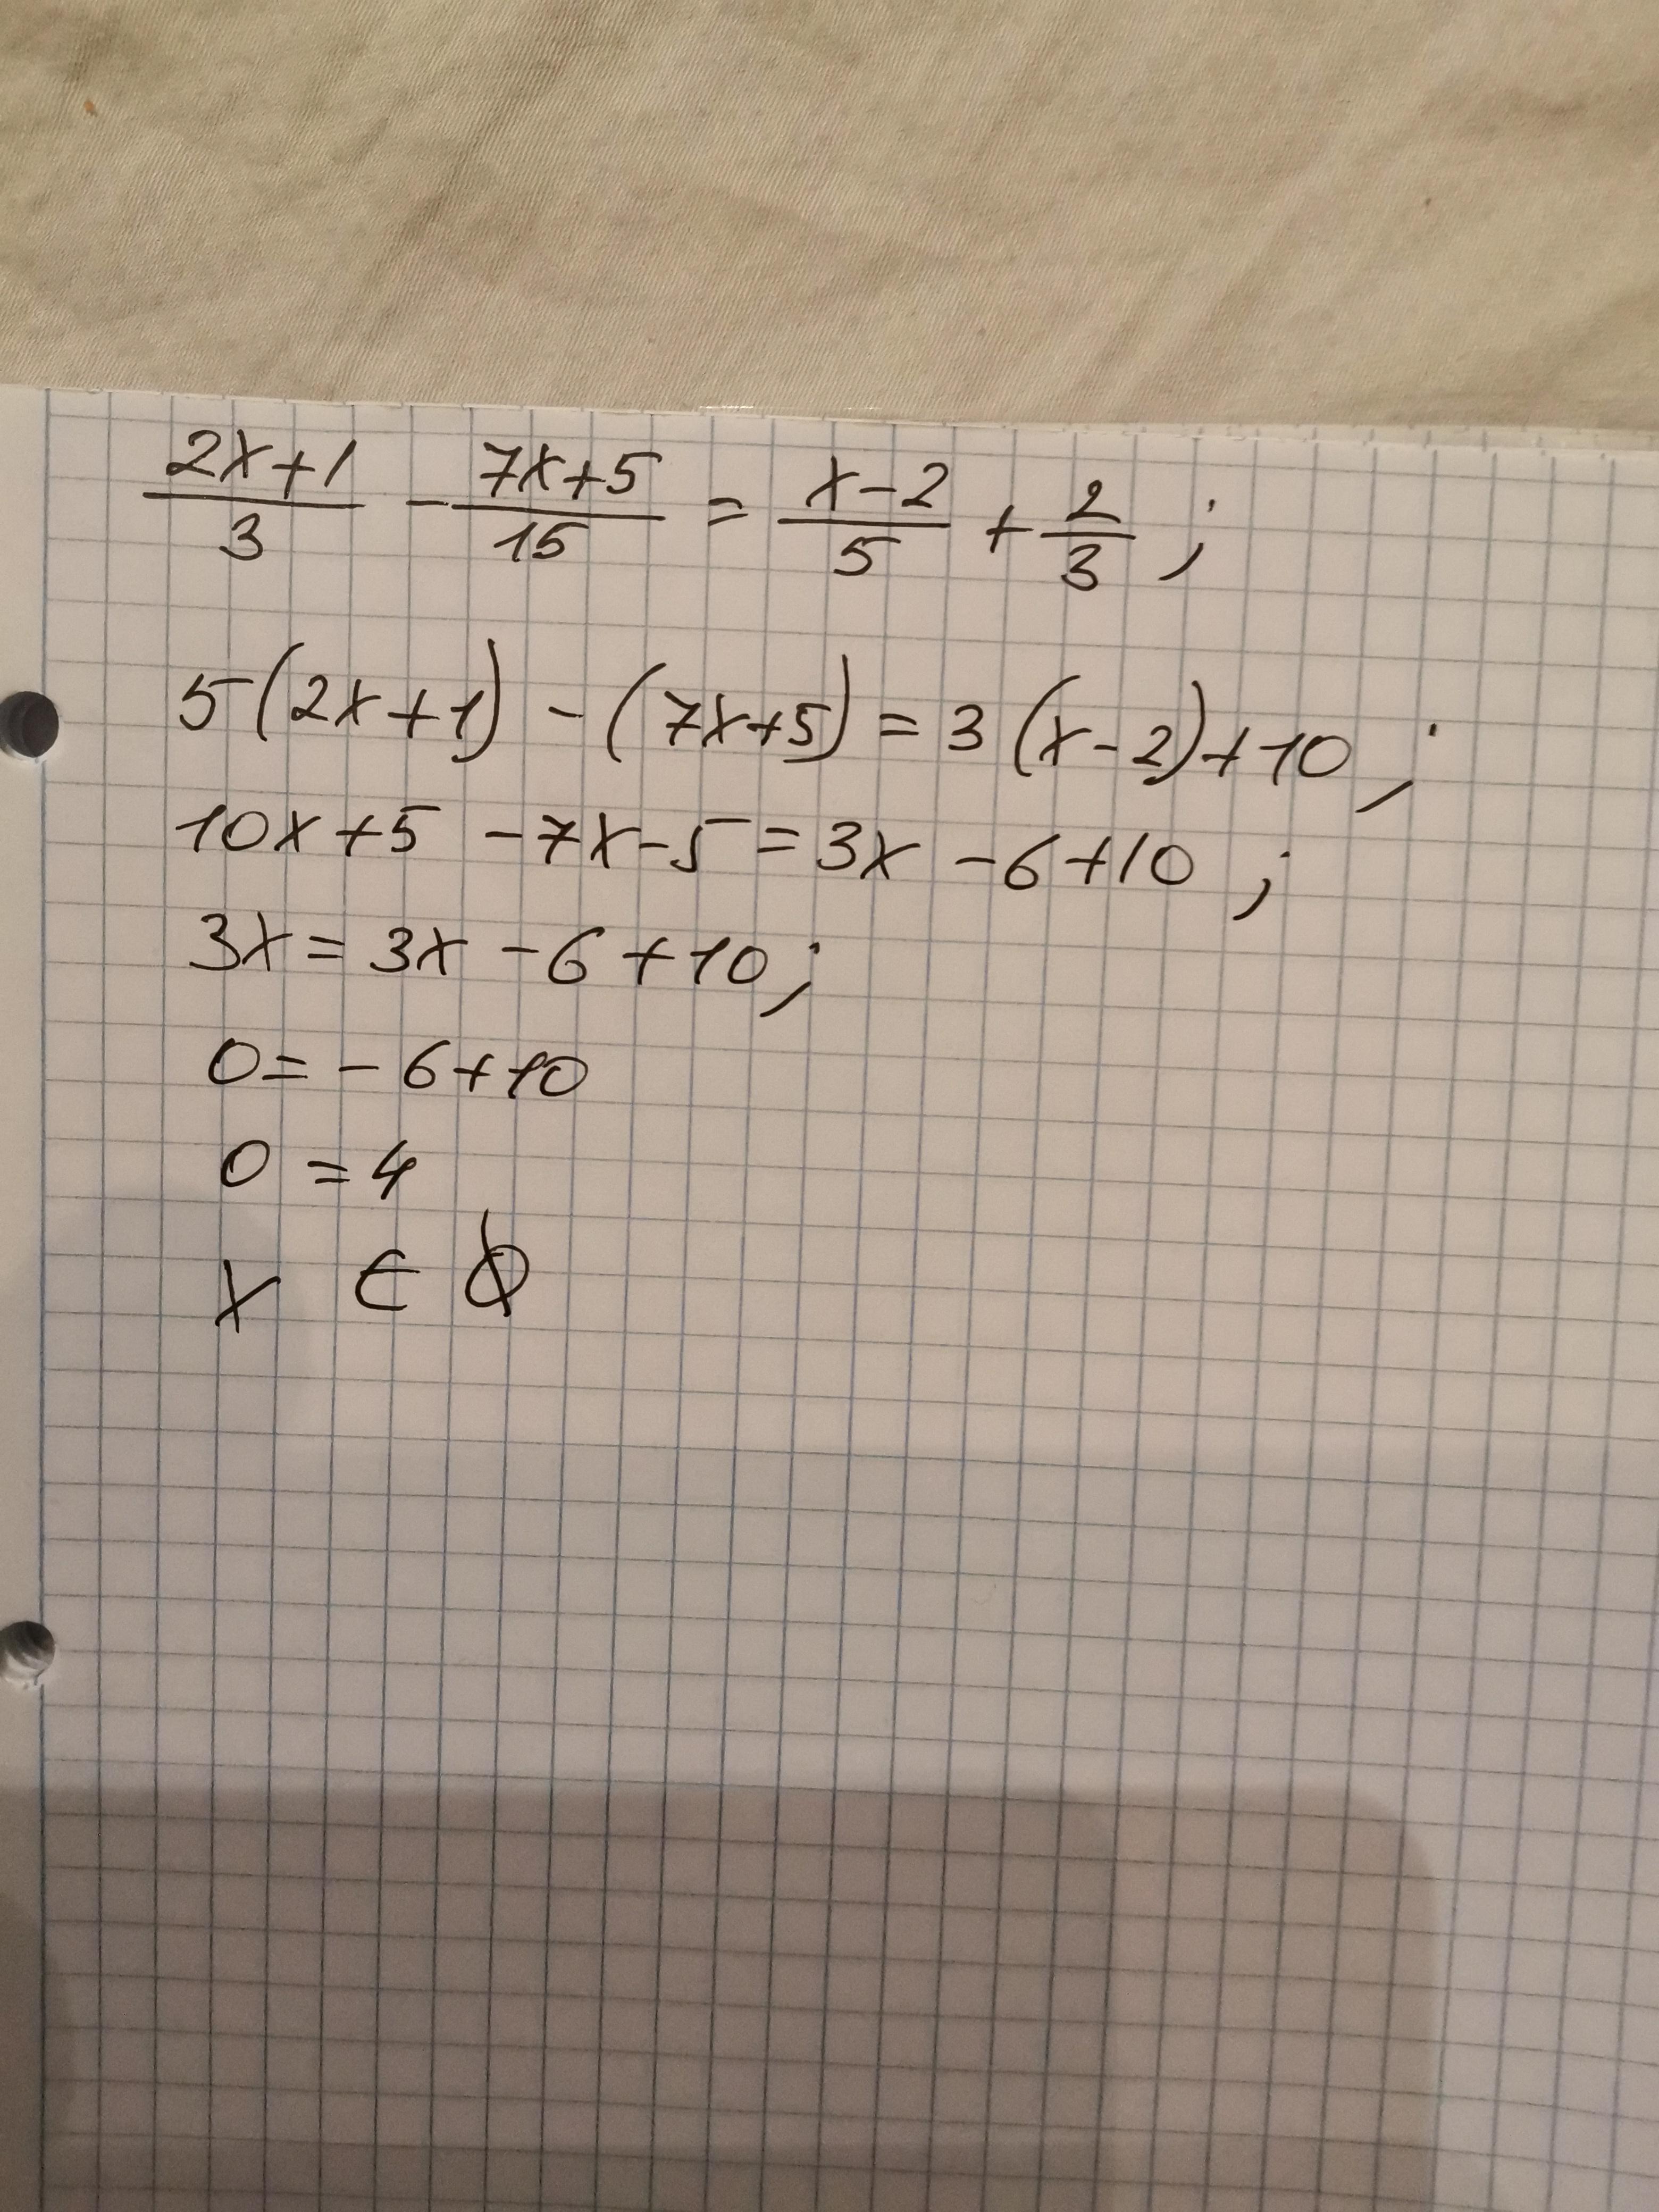 (2x+1)/3 - (7x+5)/15 = (x-2)/5 + 2/3 ;
5(2x+1) - (7x+5) = 3(x-2)+10 ;
10x+5 -7x-5 = 3x -6+10 ;
3x = 3x -6 +10 ;
0 = -6+10
0 = 4
x ∈ ∅